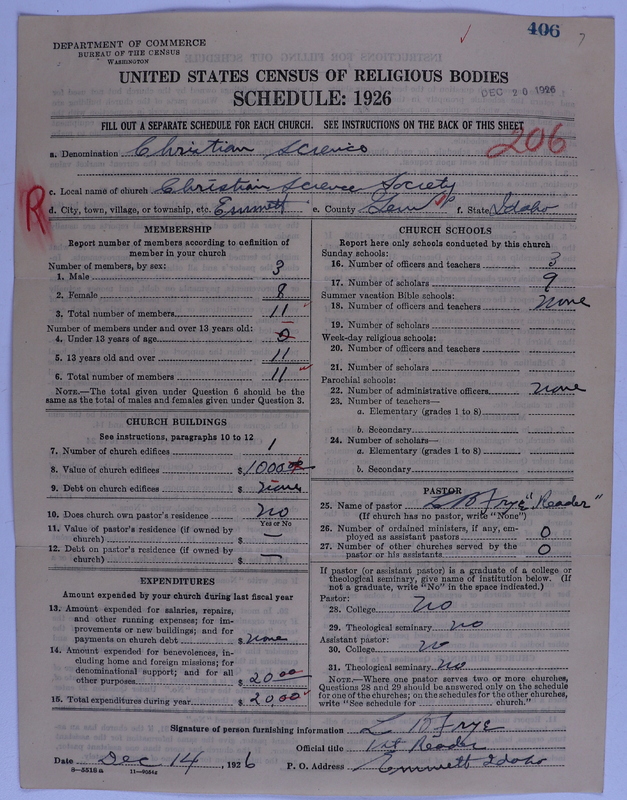 406
DEPARTMENT OF COMMERCE
BUREAU OF THE CENSUS
WASHINGTON
UNITED STATES CENSUS OF RELIGIOUS BODIES
SCHEDULE: 1926
DEC 20 1926
FILL OUT A SEPARATE SCHEDULE FOR EACH CHURCH. SEE INSTRUCTIONS ON THE BACK OF THIS SHEET
206
a. Denomination Christian Science
c. Local name of church Christian Science Society
R
d. City, town, village, or township, etc. Emmett e. County Gem f. State Idaho
MEMBERSHIP
Report number of members according to definition of
member in your church
Number of members, by sex:
1. Male 3
2. Female 8
3. Total number of members 11
Number of members under and over 13 years old:
4. Under 13 years of age 0
5. 13 years old and over 11
6. Total number of members 11
NOTE.—The total given under Question 6 should be
the same as the total of males and females given under Question 3.
CHURCH BUILDINGS
See instructions, paragraphs 10 to 12
7. Number of church edifices 1
8. Value of church edifices $ 1000.00
9. Debt on church edifices $ none
10. Does church own pastor's residence no
Yes or No
11. Value of pastor's residence (if owned by
church) $ —
12. Debt on pastor's residence (if owned by
church) $ —
EXPENDITURES
Amount expended by your church during last fiscal year
13. Amount expended for salaries, repairs,
and other running expenses; for im-
provements or new buildings; and for
payments on church debt $ none
14. Amount expended for benevolences, in-
cluding home and foreign missions; for
denominational support; and for all
other purposes $ 20.00
15. Total expenditures during year $ 20.00
CHURCH SCHOOLS
Report here only schools conducted by this church
Sunday schools:
16. Number of officers and teachers 3
17. Number of scholars 9
Summer vacation Bible schools:
18. Number of officers and teachers none
19. Number of scholars
Week-day religious schools:
20. Number of officers and teachers
21. Number of scholars
Parochial schools:
22. Number of administrative officers none
23. Number of teachers—
a. Elementary (grades 1 to 8)
b. Secondary
24. Number of scholars—
a. Elementary (grades 1 to 8)
b. Secondary
PASTOR
25. Name of pastor L B Frye "Reader"
(If church has no pastor, write "None")
26. Number of ordained ministers, if any, em-
ployed as assistant pastors 0
27. Number of other churches served by the
pastor or his assistants 0
If pastor (or assistant pastor) is a graduate of a college or
theological seminary, give name of institution below. (If
not a graduate, write "No" in the space indicated.)
Pastor:
28. College no
29. Theological seminary no
Assistant pastor:
30. College no
31. Theological seminary no
NOTE.—Where one pastor serves two or more churches,
Questions 28 and 29 should be answered only on the schedule
for one of the churches; on the schedules for the other churches,
write "See schedule for church."
Signature of person furnishing information L B Frye
Official title 1st Reader
Date Dec 14, 1926 P. O. Address Emmett Idaho
8—5518a